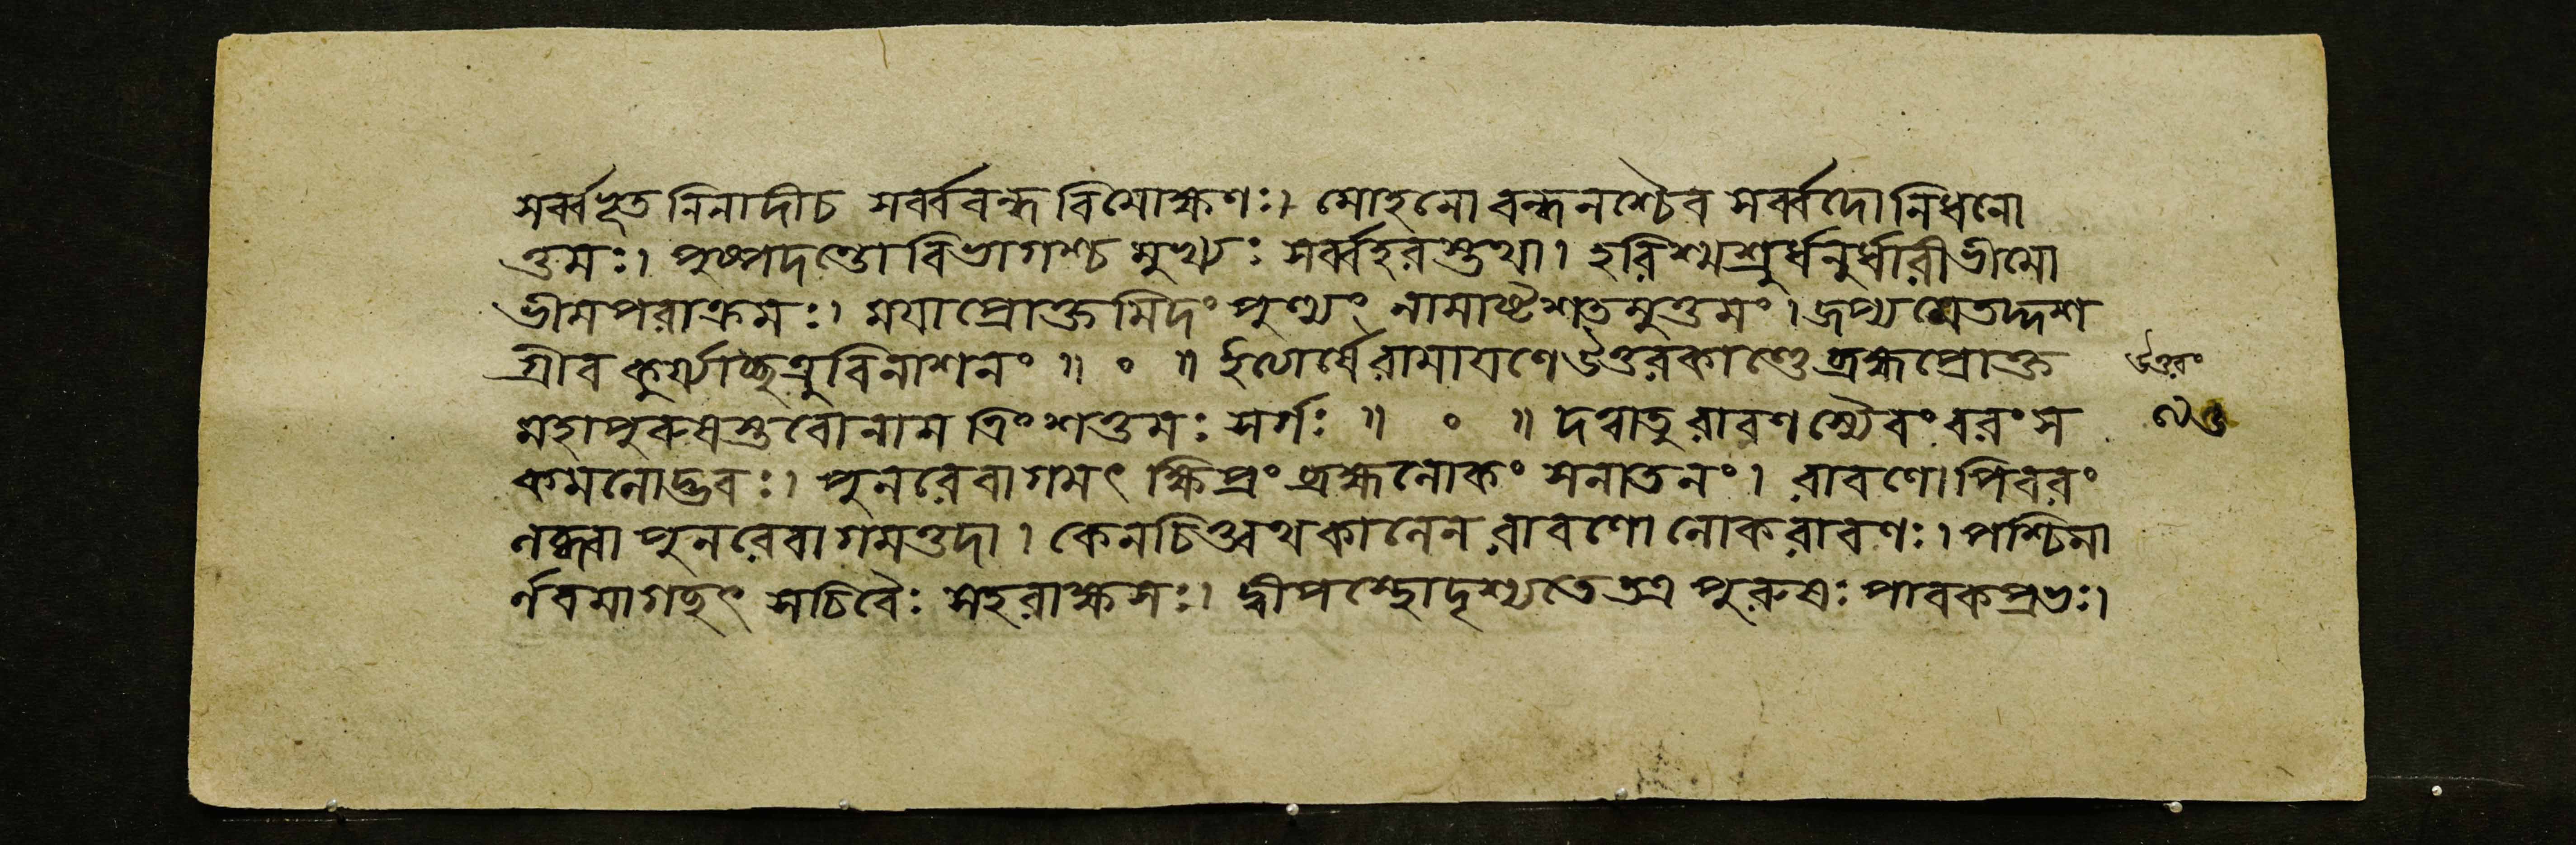 সর্ব্বভূতনিনাদীচ সর্ব্ববন্ধবিমোক্ষণঃ। মোহনো বন্ধনশ্চৈব সর্ব্বদো নিধনো
ত্তমঃ। পুষ্পদণ্ডো বিভাগশ্চ মুখ্যঃ সর্ব্বহরস্তথা। হরিশ্মশ্রুর্ধনুর্ধারী ভীমো
ভীমপরাক্রমঃ। ময়া প্রোক্তমিদং পুণ্যং নামাষ্টশতমুত্তমং। জপ্যমেতদ্দশ
গ্রীব কুর্য্যাচ্ছত্রুবিনাশনং॥ ০ ॥ ইত্যার্ষেরামায়ণেউত্তরকাণ্ডে ব্রহ্মপ্রোক্ত
মহাপুরুষস্তবোনাম ত্রিংশত্তমঃ সর্গঃ॥ ০ ॥ দত্বাতু রাবণস্যৈবং বরং স
কমলোদ্ভবঃ। পুনরেবাগমৎ ক্ষিপ্রং ব্রহ্মলোকং সনাতনং। রাবণোপিবরং
লব্ধ্বা পুনরেবাগমত্তদা। কেনচিত্ত্বথকালেন রাবণো লোকরাবণঃ। পশ্চিমা
র্ণবমাগছৎ সচিবৈঃ সহরাক্ষসঃ। দ্বীপস্থোদৃশ্যতেতত্র পুরুষঃ পাবকপ্রভঃ।
উত্তরং